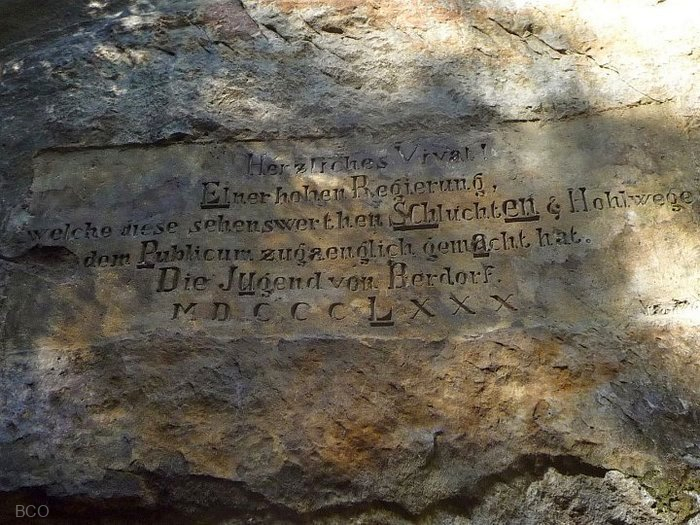 Herzliches Vivat!
Einer hohen Regierung,
welche diese sehenswerthen Schluchten & Hohlwege
dem Publicum zugaenglich gemacht hat.
Die Jugend von Berdorf.
MDCCCLXXX
BCO